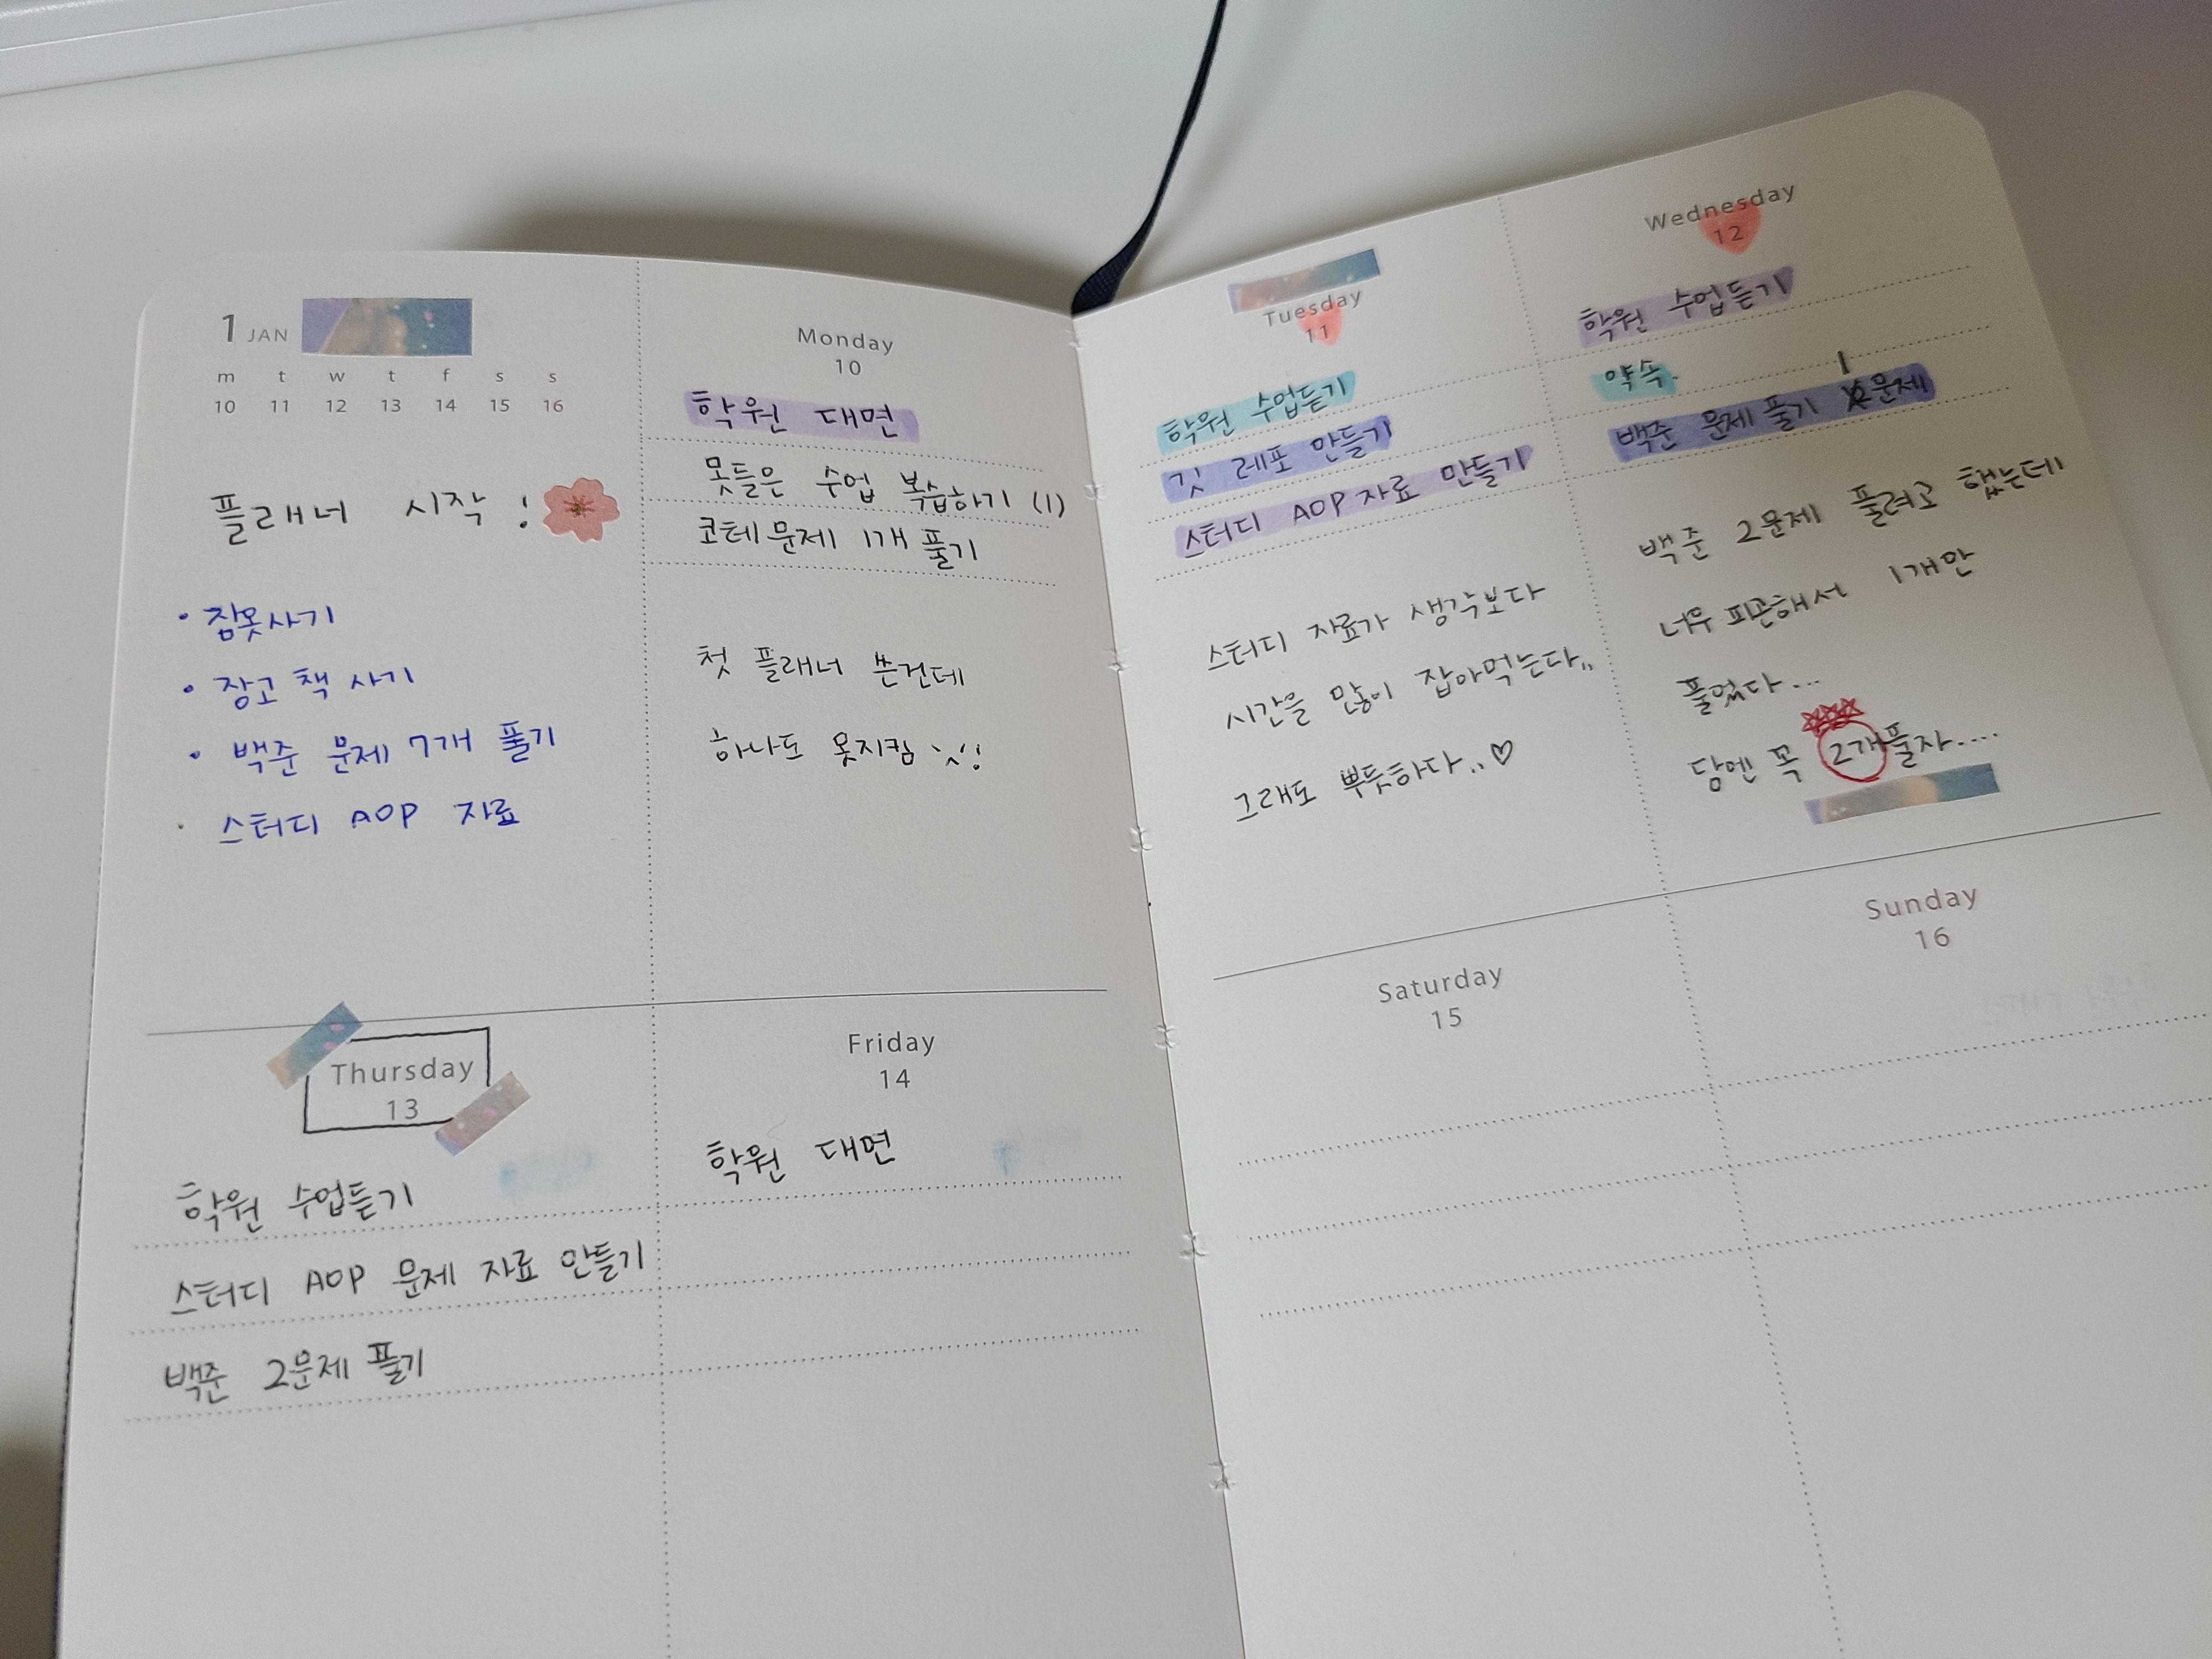 1 JAN
m t w t f s s
10 11 12 13 14 15 16
플래너 시작!
• 잠옷사기
• 장고 책 사기
• 백준 문제 7개 풀기
· 스터디 AOP 자료
Monday
10
학원 대면
못들은 수업 복습하기 (1)
코테문제 1개 풀기
첫 플래너 쓴건데
하나도 못지킴
Tuesday
11
학원 수업듣기
깃 레포 만들기
스터디 AOP 자료 만들기
스터디 자료가 생각보다
시간을 많이 잡아먹는다..
그래도 뿌듯하다..♡
Wednesday
12
학원 수업듣기
약속.
1
백준 문제풀기 2문제
백준 2문제 풀려고 했는데
너무 피곤해서 1개만
풀었다...
담엔 꼭 2개풀자....
Thursday
13
학원 수업듣기
스터디 AOP 문제 자료 만들기
백준 2문제 풀기
Friday
14
학원 대면
Saturday
15
Sunday
16